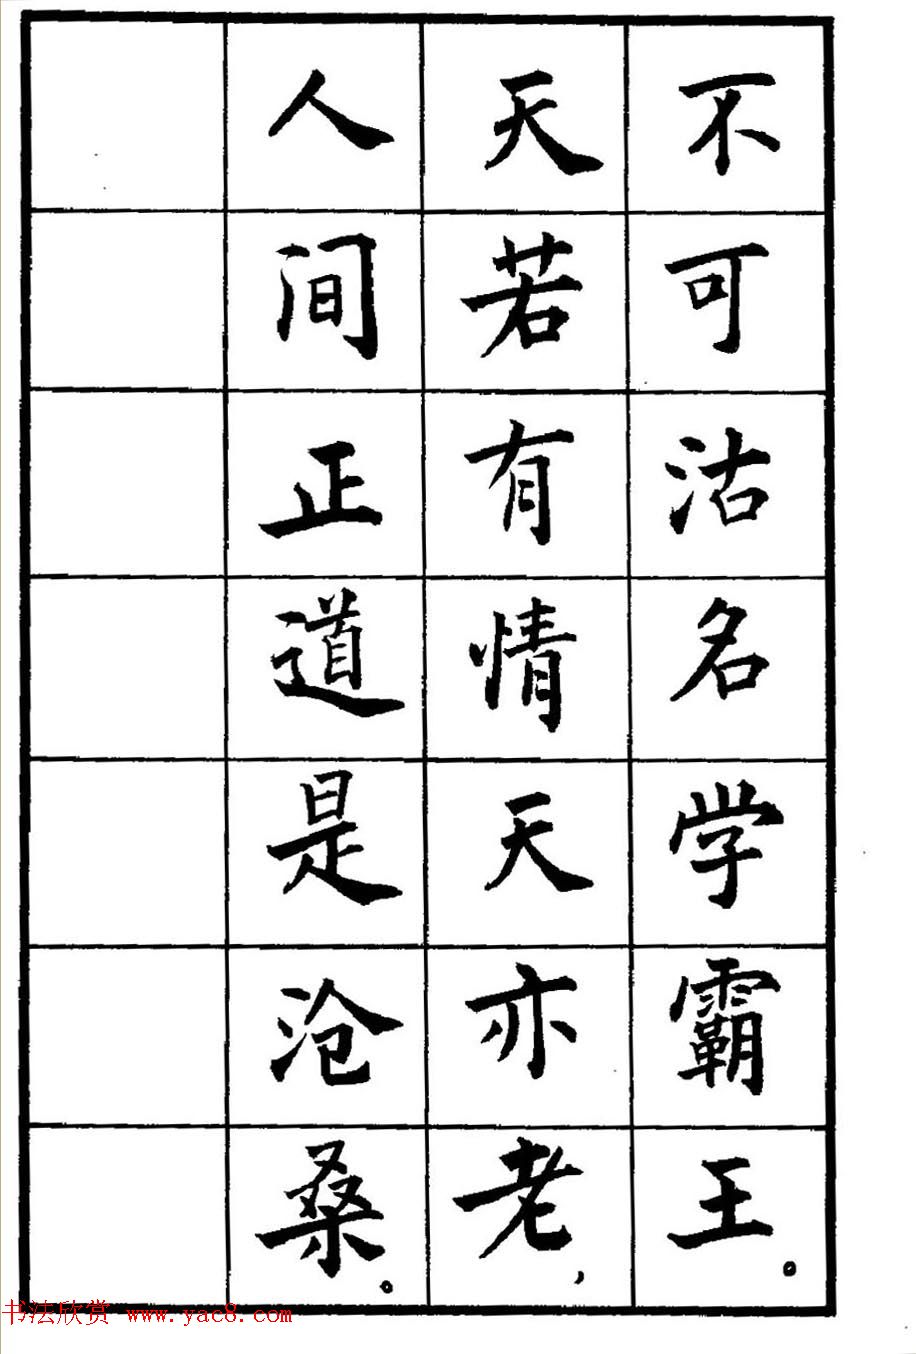 不可沽名学霸王。
天若有情天亦老，
人间正道是沧桑。
书法欣赏 www.yac8.com